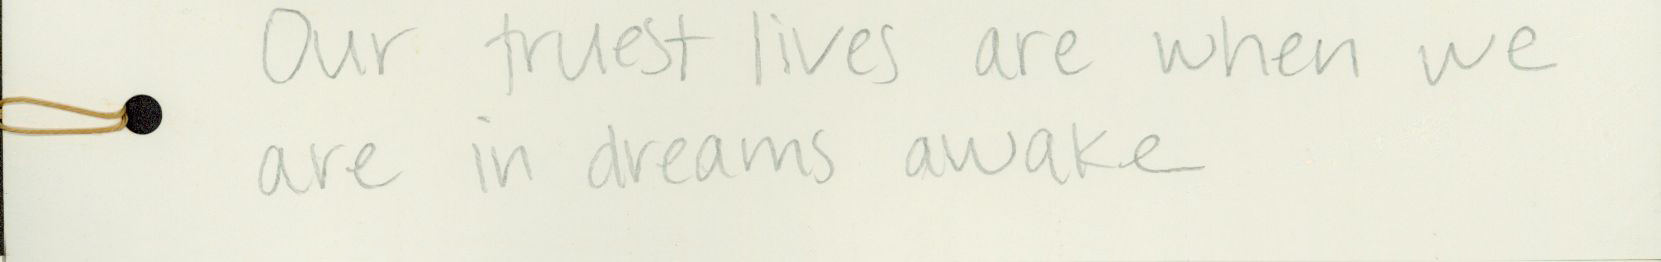 Our truest lives are when we
are in dreams awake